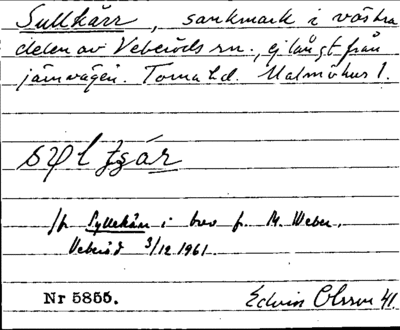 Sullkärr, sankmark i västra
delen av Veberöds sn., ej långt från
järnvägen. Torna hd. Malmöhus l.
jfr Syllekärr i brev fr. M. Weber,
Veberöd 3/12 1961.
Nr 5855. Edvin Olsson 41